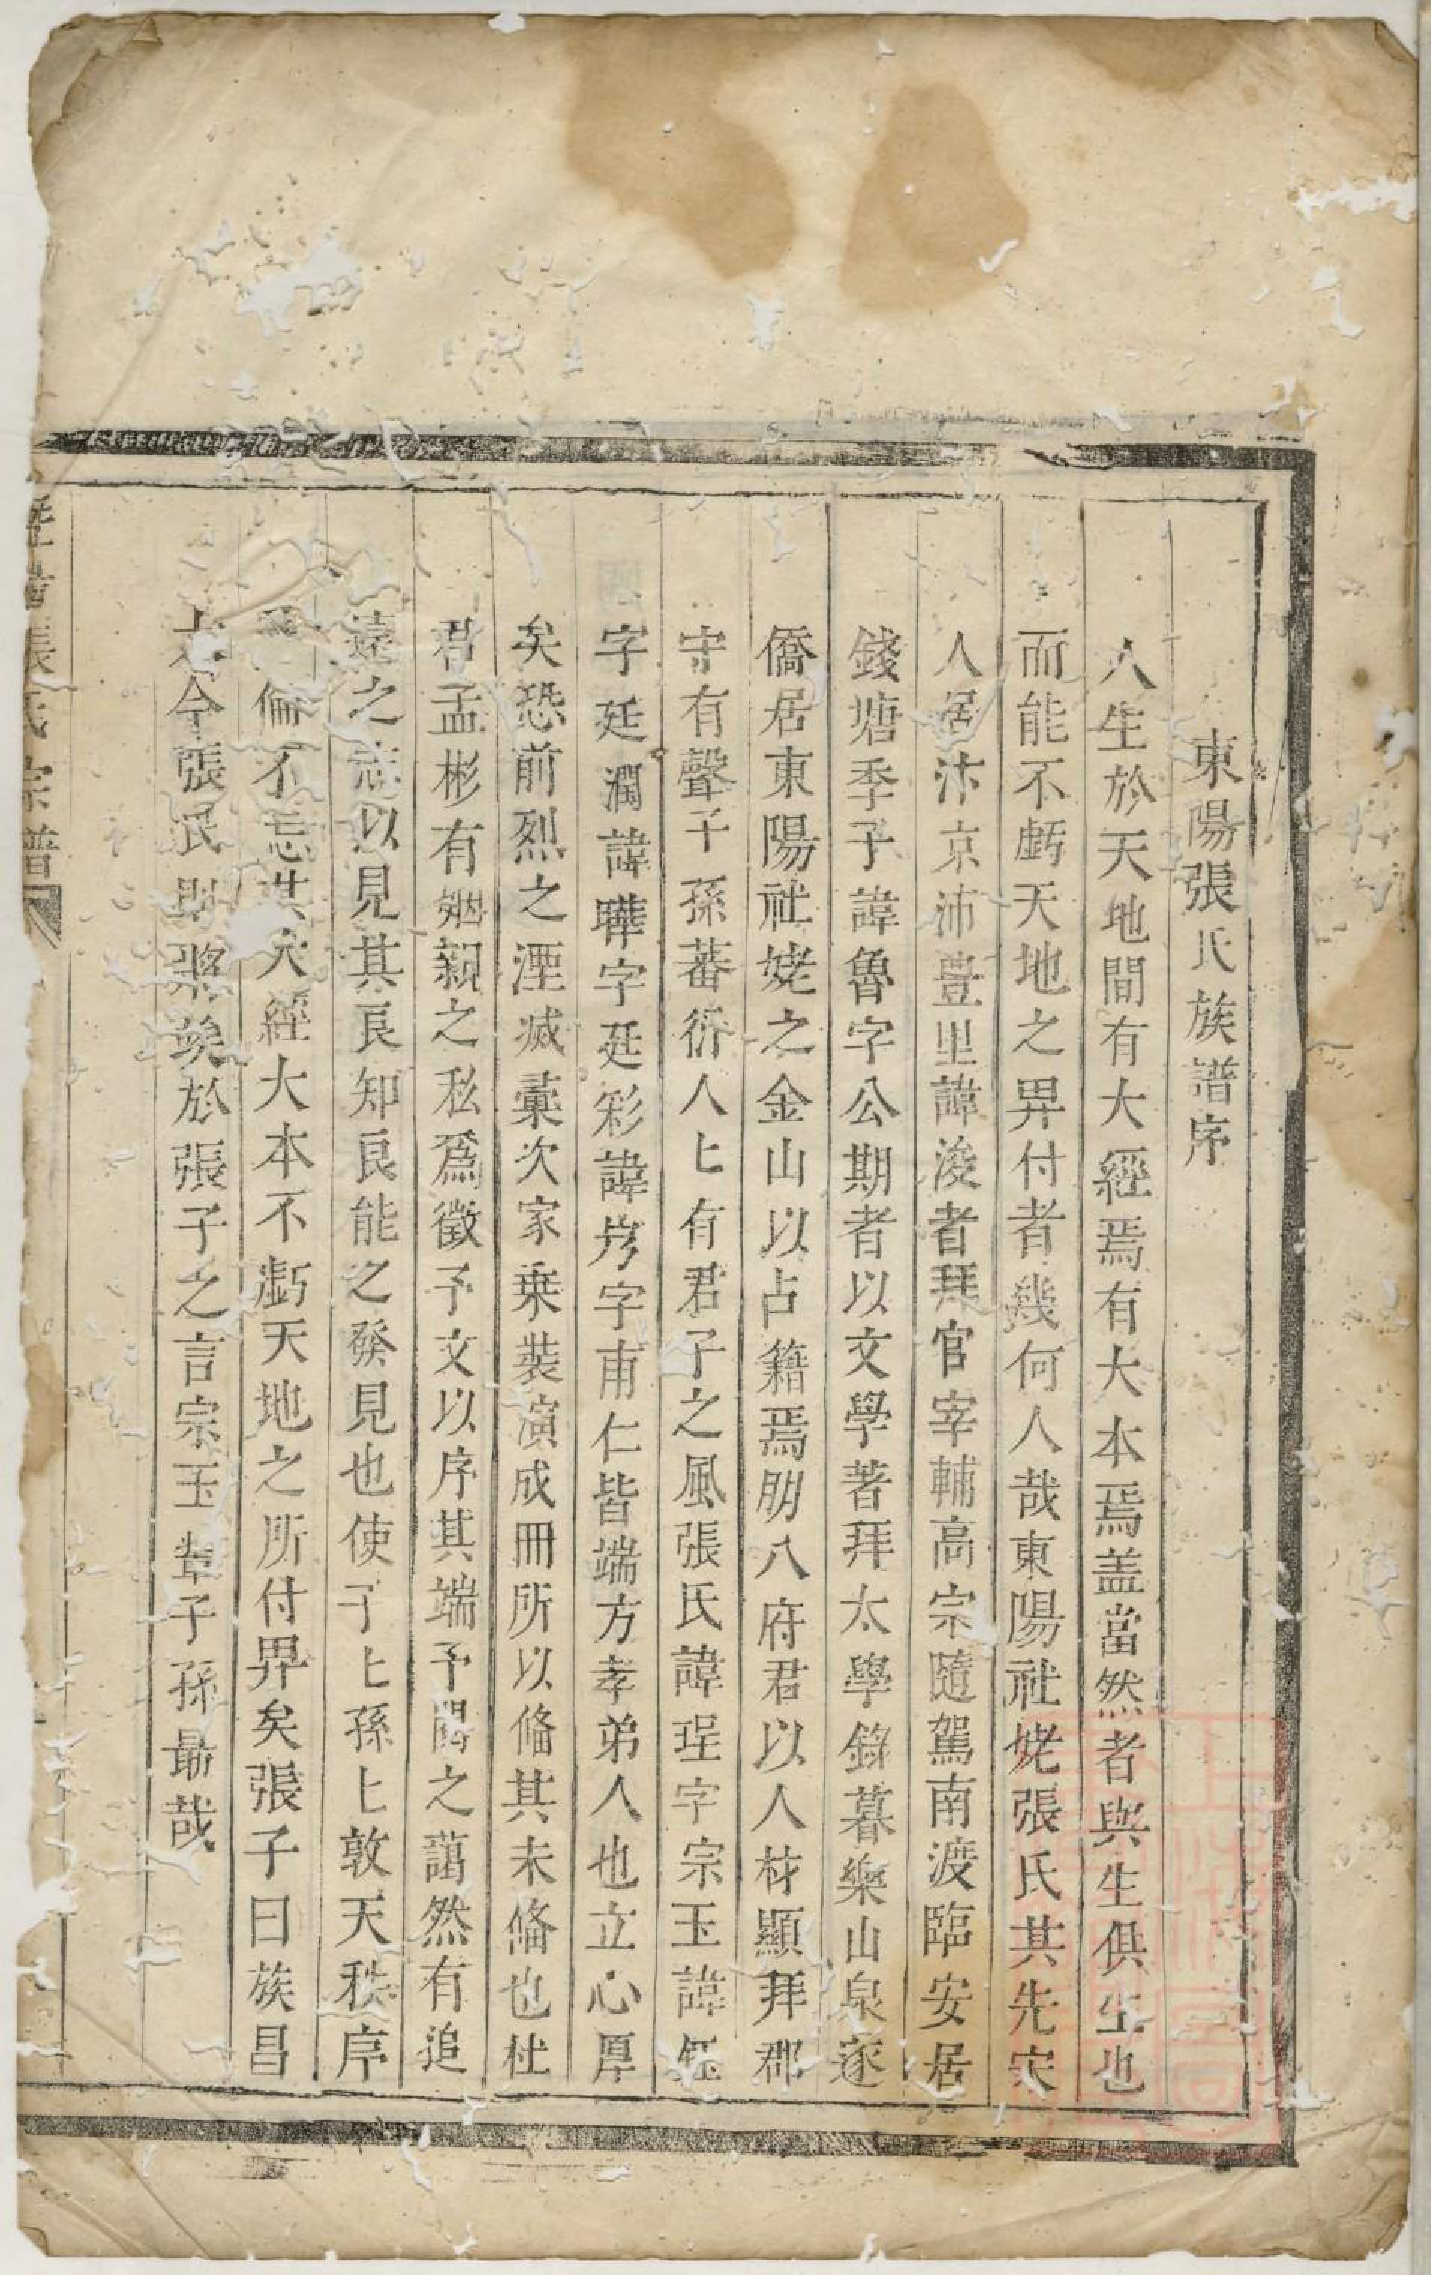 東陽張氏族譜序
人生於天地間有大經焉有大本焉盖當然者與生俱生也
而能不虧天地之畀付者幾何人哉東陽社姥張氏其先宋
人居汴京沛豊里諱浚者拜官宰輔高宗隨駕南渡臨安居
錢塘季子諱魯字公期者以文學著拜太學錄暮樂山泉逐
僑居東陽社姥之金山以占籍焉朋八府君以人材顯拜郡
守有聲子孫蕃衍人匕有君子之風張氏諱珵字宗玉諱鈺
字廷潤諱曄字廷彩諱岁字甫仁皆端方孝弟人也立心厚
矣恐前烈之湮滅彙次家乗裝演成冊所以俻其未俻也杜
君孟彬有姻親之私爲徵予文以序其端予閱之藹然有追
遠之志以見其良知良能之發見也使子匕孫匕敦天秩序
倫不忘其大經大本不虧天地之所付畀矣張子曰族昌
大今張氏財將羙於張子之言宗玉軰子孫勗哉
張氏宗譜